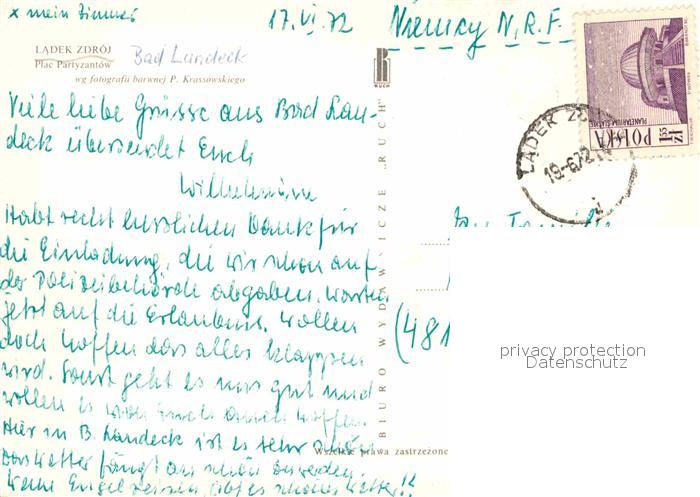 x mein Zimmer
17.VI.72
Niemcy N.R.F.
LĄDEK ZDRÓJ
Plac Partyzantów
Bad Landeck
wg fotografii barwnej P. Krassowskiego
RUCH
Viele liebe Grüsse aus Bad Lan-
deck übersendet Euch
Wilhelmine
Habt recht herzlichen Dank für
die Einladung, die wir schon auf
der Polizeibehörde abgaben. Warten
jetzt auf die Erlaubnis. Wollen
doch hoffen das alles klappen
wird. Sonst geht es uns gut und
wollen es von Euch auch hoffen.
Hier in B. Landeck ist es sehr schön
Das Wetter fängt an schön zu werden.
Wenn Engel reisen, gibt es schönes Wetter!!
BIURO WYDAWNICZE „RUCH"
Wszelkie prawa zastrzeżone
PLANETARIUM ŚLĄSKIE
POLSKA
1,55 ZŁ
LĄDEK ZDRÓJ
19-6.72
(481
privacy protection
Datenschutz